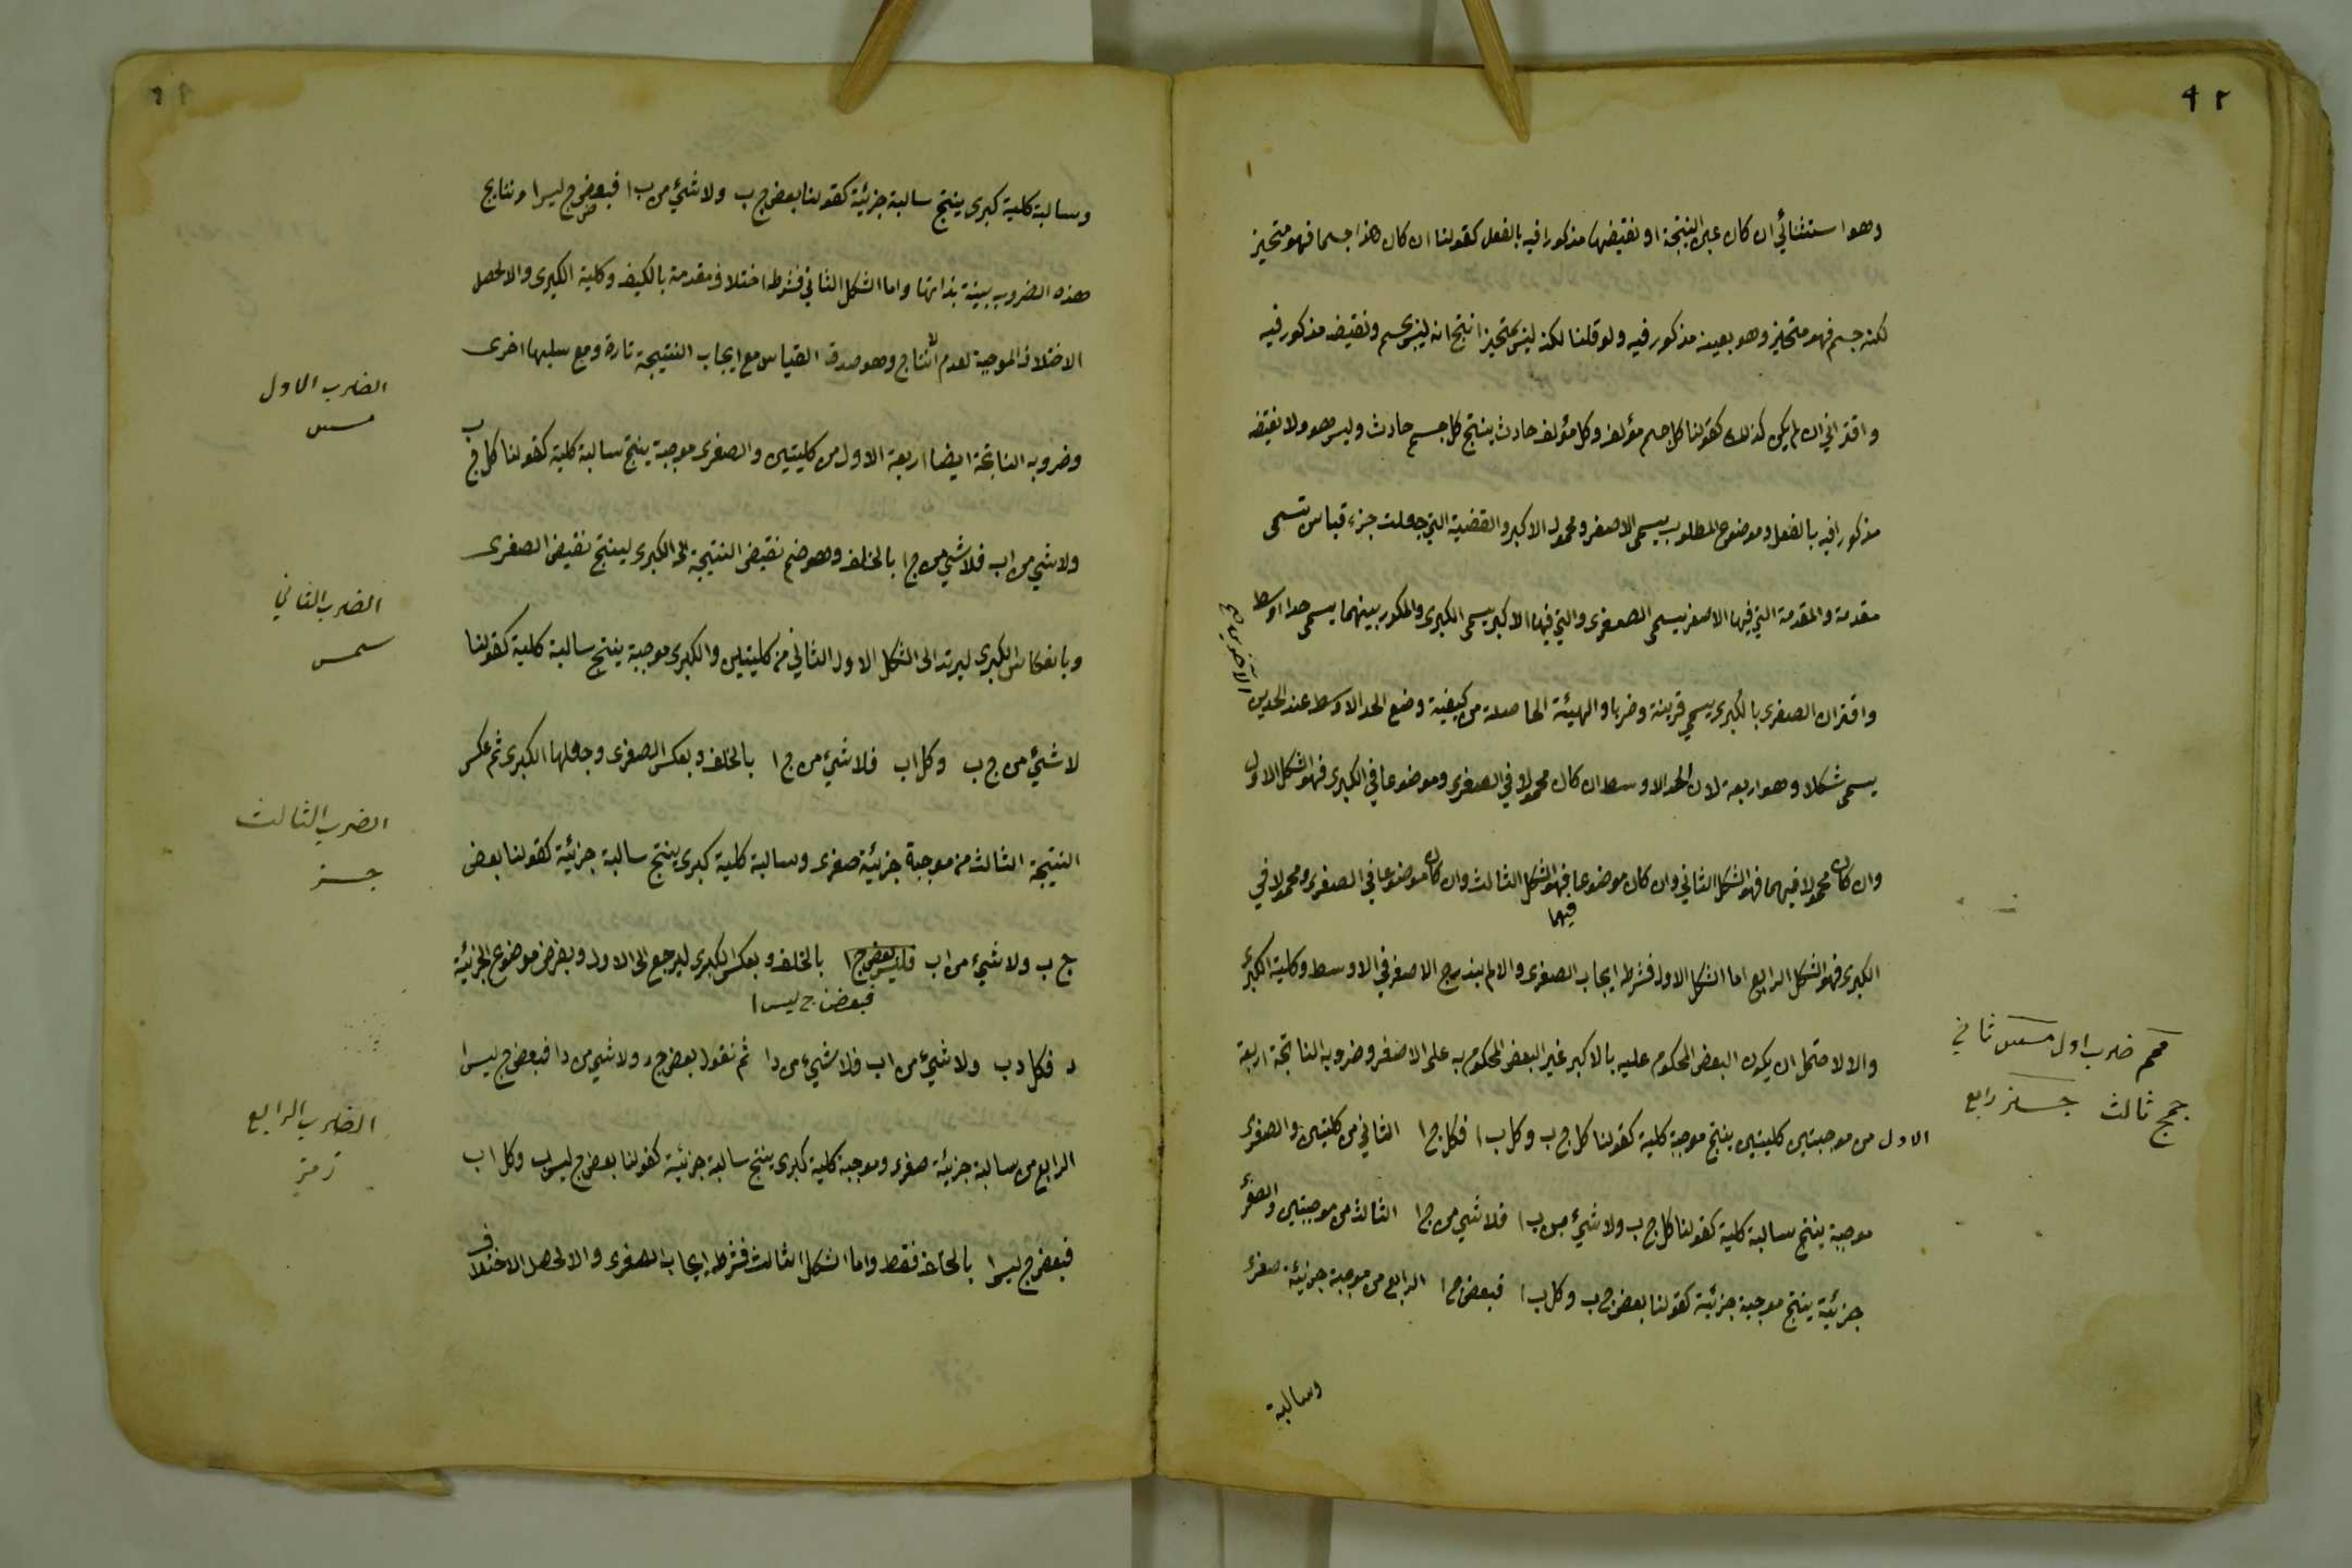 ٩٢
وهو استثنائي ان كان عين النتيجة او نقيضها مذكورا فيه بالفعل كقولنا ان كان هذا جسما فهو متحيز
لكنه جسم فهو متحيز وهو بعينه مذكور فيه ولو قلنا لكنه ليس بمتحيز انتج انه ليس بجسم ونقيضه مذكور فيه
واقتراني ان لم يكن كذلك كقولنا كل جسم مؤلف وكل مؤلف حادث ينتج كل جسم حادث وليس هو ولا نقيضه
مذكورا فيه بالفعل وموضوع المطلوب يسمى الاصغر ومحموله الاكبر والقضية التي جعلت جزء قياس تسمى
مقدمة والمقدمة التي فيها الاصغر يسمى الصغرى والتي فيها الاكبر يسمى الكبرى والمكرر بينهما يسمى حدا اوسط
واقتران الصغرى بالكبرى يسمى قرينة وضربا والهيئة الحاصلة من كيفية وضع الحد الاوسط عند الحدين
الآخرين
يسمى شكلا وهو اربعة لان الحد الاوسط ان كان محمولا في الصغرى وموضوعا في الكبرى فهو الشكل الاول
وان كان محمولا فيهما فهو الشكل الثاني وان كان موضوعا فهو الشكل الثالث وان كان موضوعا في الصغرى ومحمولا في
فيهما
الكبرى فهو الشكل الرابع اما الشكل الاول فشرطه ايجاب الصغرى والا لم يندرج الاصغر في الاوسط وكلية الكبرى
والا لاحتمل ان يكون البعض المحكوم عليه بالاكبر غير البعض المحكوم به على الاصغر وضروبه الناتجة اربعة
الاول من موجبتين كليتين ينتج موجبة كلية كقولنا كل ج ب وكل ب ا فكل ج ا الثاني من كليتين والصغرى
موجبة ينتج سالبة كلية كقولنا كل ج ب ولا شيء من ب ا فلا شيء من ج ا الثالث من موجبتين والصغرى
جزئية ينتج موجبة جزئية كقولنا بعض ج ب وكل ب ا فبعض ج ا الرابع من موجبة جزئية صغرى
وسالبة
ضرب اول ثاني
ثالث رابع
وسالبة كلية كبرى ينتج سالبة جزئية كقولنا بعض ج ب ولا شيء من ب ا فبعض ج ليس ا ونتايج
هذه الضروب بينة بذاتها واما الشكل الثاني فشرطه اختلاف مقدمة بالكيف وكلية الكبرى والا لحصل
الاختلاف الموجبة لعدم الانتاج وهو صدق القياس مع ايجاب النتيجة تارة ومع سلبها اخرى
وضروبه الناتجة ايضا اربعة الاول من كليتين والصغرى موجبة ينتج سالبة كلية كقولنا كل ج ب
ولا شيء من اب فلا شيء من ج ا بالخلف وهو ضم نقيض النتيجة الى الكبرى لينتج نقيض الصغرى
وبانعكاس الكبرى ليرتد الى الشكل الاول الثاني من كليتين والكبرى موجبة ينتج سالبة كلية كقولنا
لا شيء من ج ب وكل اب فلا شيء من ج ا بالخلف وبعكس الصغرى وجعلها الكبرى ثم عكس
النتيجة الثالث من موجبة جزئية صغرى وسالبة كلية كبرى ينتج سالبة جزئية كقولنا بعض
ج ب ولا شيء من اب فليس بعض ج ا بالخلف وبعكس الكبرى ليرجع الى الاول وبفرض موضوع الجزئية
فبعض ج ليس ا
د فكل د ب ولا شيء من اب فلا شيء من د ا ثم نقول بعض ج د ولا شيء من د ا فبعض ج ليس ا
الرابع من سالبة جزئية صغرى وموجبة كلية كبرى ينتج سالبة جزئية كقولنا بعض ج ليس ب وكل اب
فبعض ج ليس ا بالخلف فقط واما الشكل الثالث فشرطه ايجاب الصغرى والا لحصل الاختلاف
الضرب الاول
الضرب الثاني
الضرب الثالث
الضرب الرابع